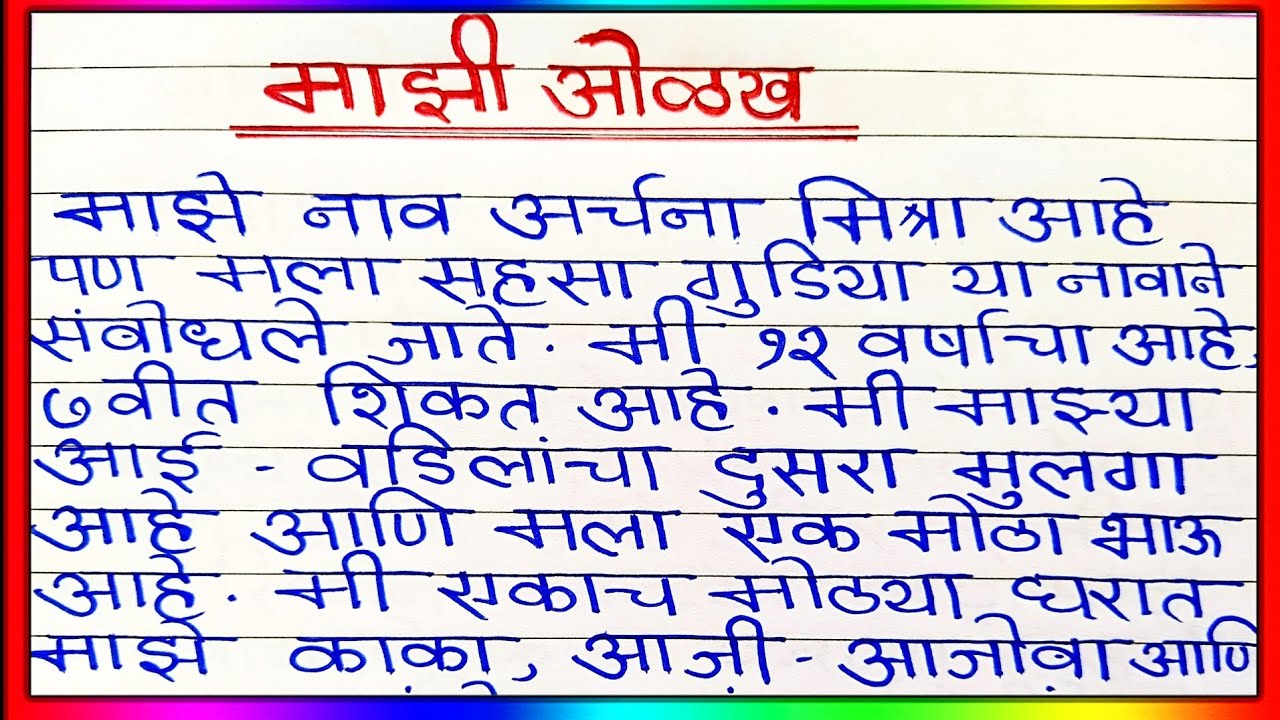 माझी ओळख
माझे नाव अर्चना मिश्रा आहे
पण मला सहसा गुडिया या नावाने
संबोधले जाते. मी १२ वर्षाचा आहे,
७वीत शिकत आहे. मी माझ्या
आई - वडिलांचा दुसरा मुलगा
आहे आणि मला एक मोठा भाऊ
आहे. मी एकाच मोठ्या घरात
माझे काका, आजी - आजोबा आणि